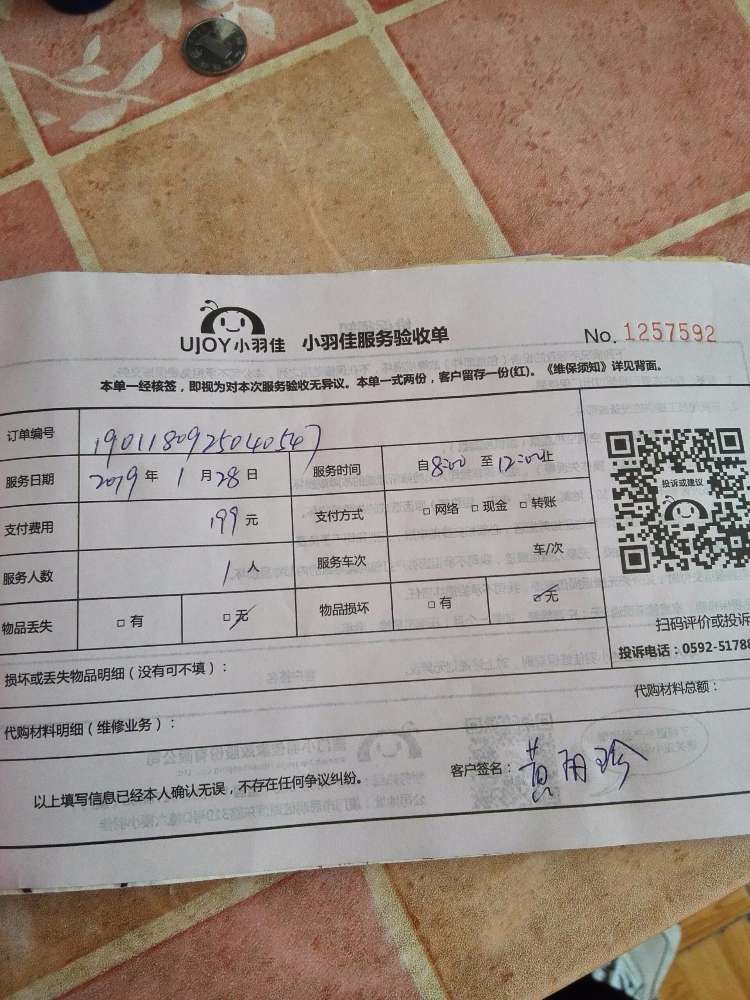 UJOY小羽佳 小羽佳服务验收单 No. 1257592
本单一经核签，即视为对本次服务验收无异议。本单一式两份，客户留存一份(红)。《维保须知》详见背面。
订单编号 1901180925040547
服务日期 2019 年 1 月 28 日 服务时间 自 8:00 至 12:00 止
投诉或建议
支付费用 199 元 支付方式 □ 网络 □ 现金 □ 转账
服务人数 1 人 服务车次 车/次
物品丢失 □ 有 □ 无 物品损坏 □ 有 □ 无
扫码评价或投诉
投诉电话：0592-51788
损坏或丢失物品明细（没有可不填）：
代购材料总额：
代购材料明细（维修业务）：
以上填写信息已经本人确认无误，不存在任何争议纠纷。 客户签名：黄阳珍